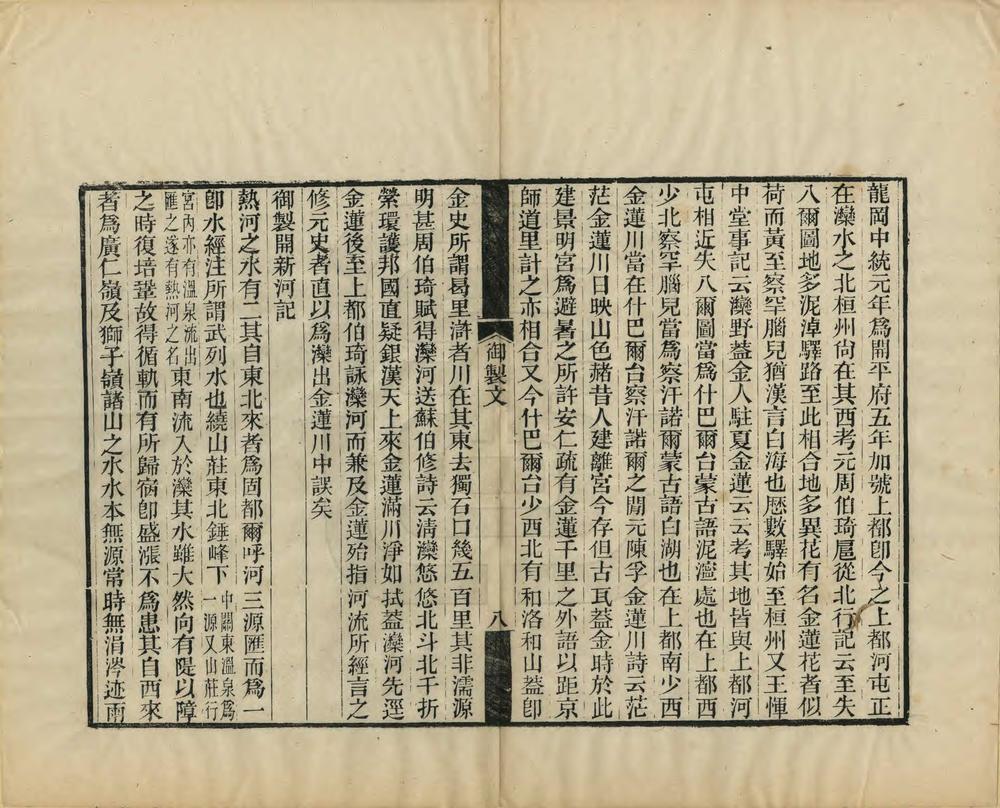 龍岡中統元年爲開平府五年加號上都卽今之上都河屯正
在灤水之北桓州尙在其西考元周伯琦扈從北行記云至失
八爾圖地多泥淖驛路至此相合地多異花有名金蓮花者似
荷而黃至察罕腦兒猶漢言白海也歷數驛始至桓州又王惲
中堂事記云灤野蓋金人駐夏金蓮云云考其地皆與上都河
屯相近失八爾圖當爲什巴爾台蒙古語泥濘處也在上都西
少北察罕腦兒當爲察汗諾爾蒙古語白湖也在上都南少西
金蓮川當在什巴爾台察汗諾爾之閒元陳孚金蓮川詩云茫
茫金蓮川日映山色赭昔人建離宮今存但古瓦蓋金時於此
建景明宮爲避暑之所許安仁疏有金蓮千里之外語以距京
師道里計之亦相合又今什巴爾台少西北有和洛和山蓋卽
御製文
八
金史所謂曷里滸者川在其東去獨石口幾五百里其非濡源
明甚周伯琦賦得灤河送蘇伯修詩云淸灤悠悠北斗北千折
縈環護邦國直疑銀漢天上來金蓮滿川淨如拭蓋灤河先逕
金蓮後至上都伯琦詠灤河而兼及金蓮殆指河流所經言之
修元史者直以爲灤出金蓮川中誤矣
御製開新河記
熱河之水有二其自東北來者爲固都爾呼河三源匯而爲一中關東溫泉爲
一源又山莊行
宮內亦有溫泉流出
匯之遂有熱河之名
卽水經注所謂武列水也繞山莊東北錘峰下
東南流入於灤其水雖大然向有隄以障
之時復培鞏故得循軌而有所歸宿卽盛漲不爲患其自西來
者爲廣仁嶺及獅子嶺諸山之水水本無源常時無涓涔迹雨